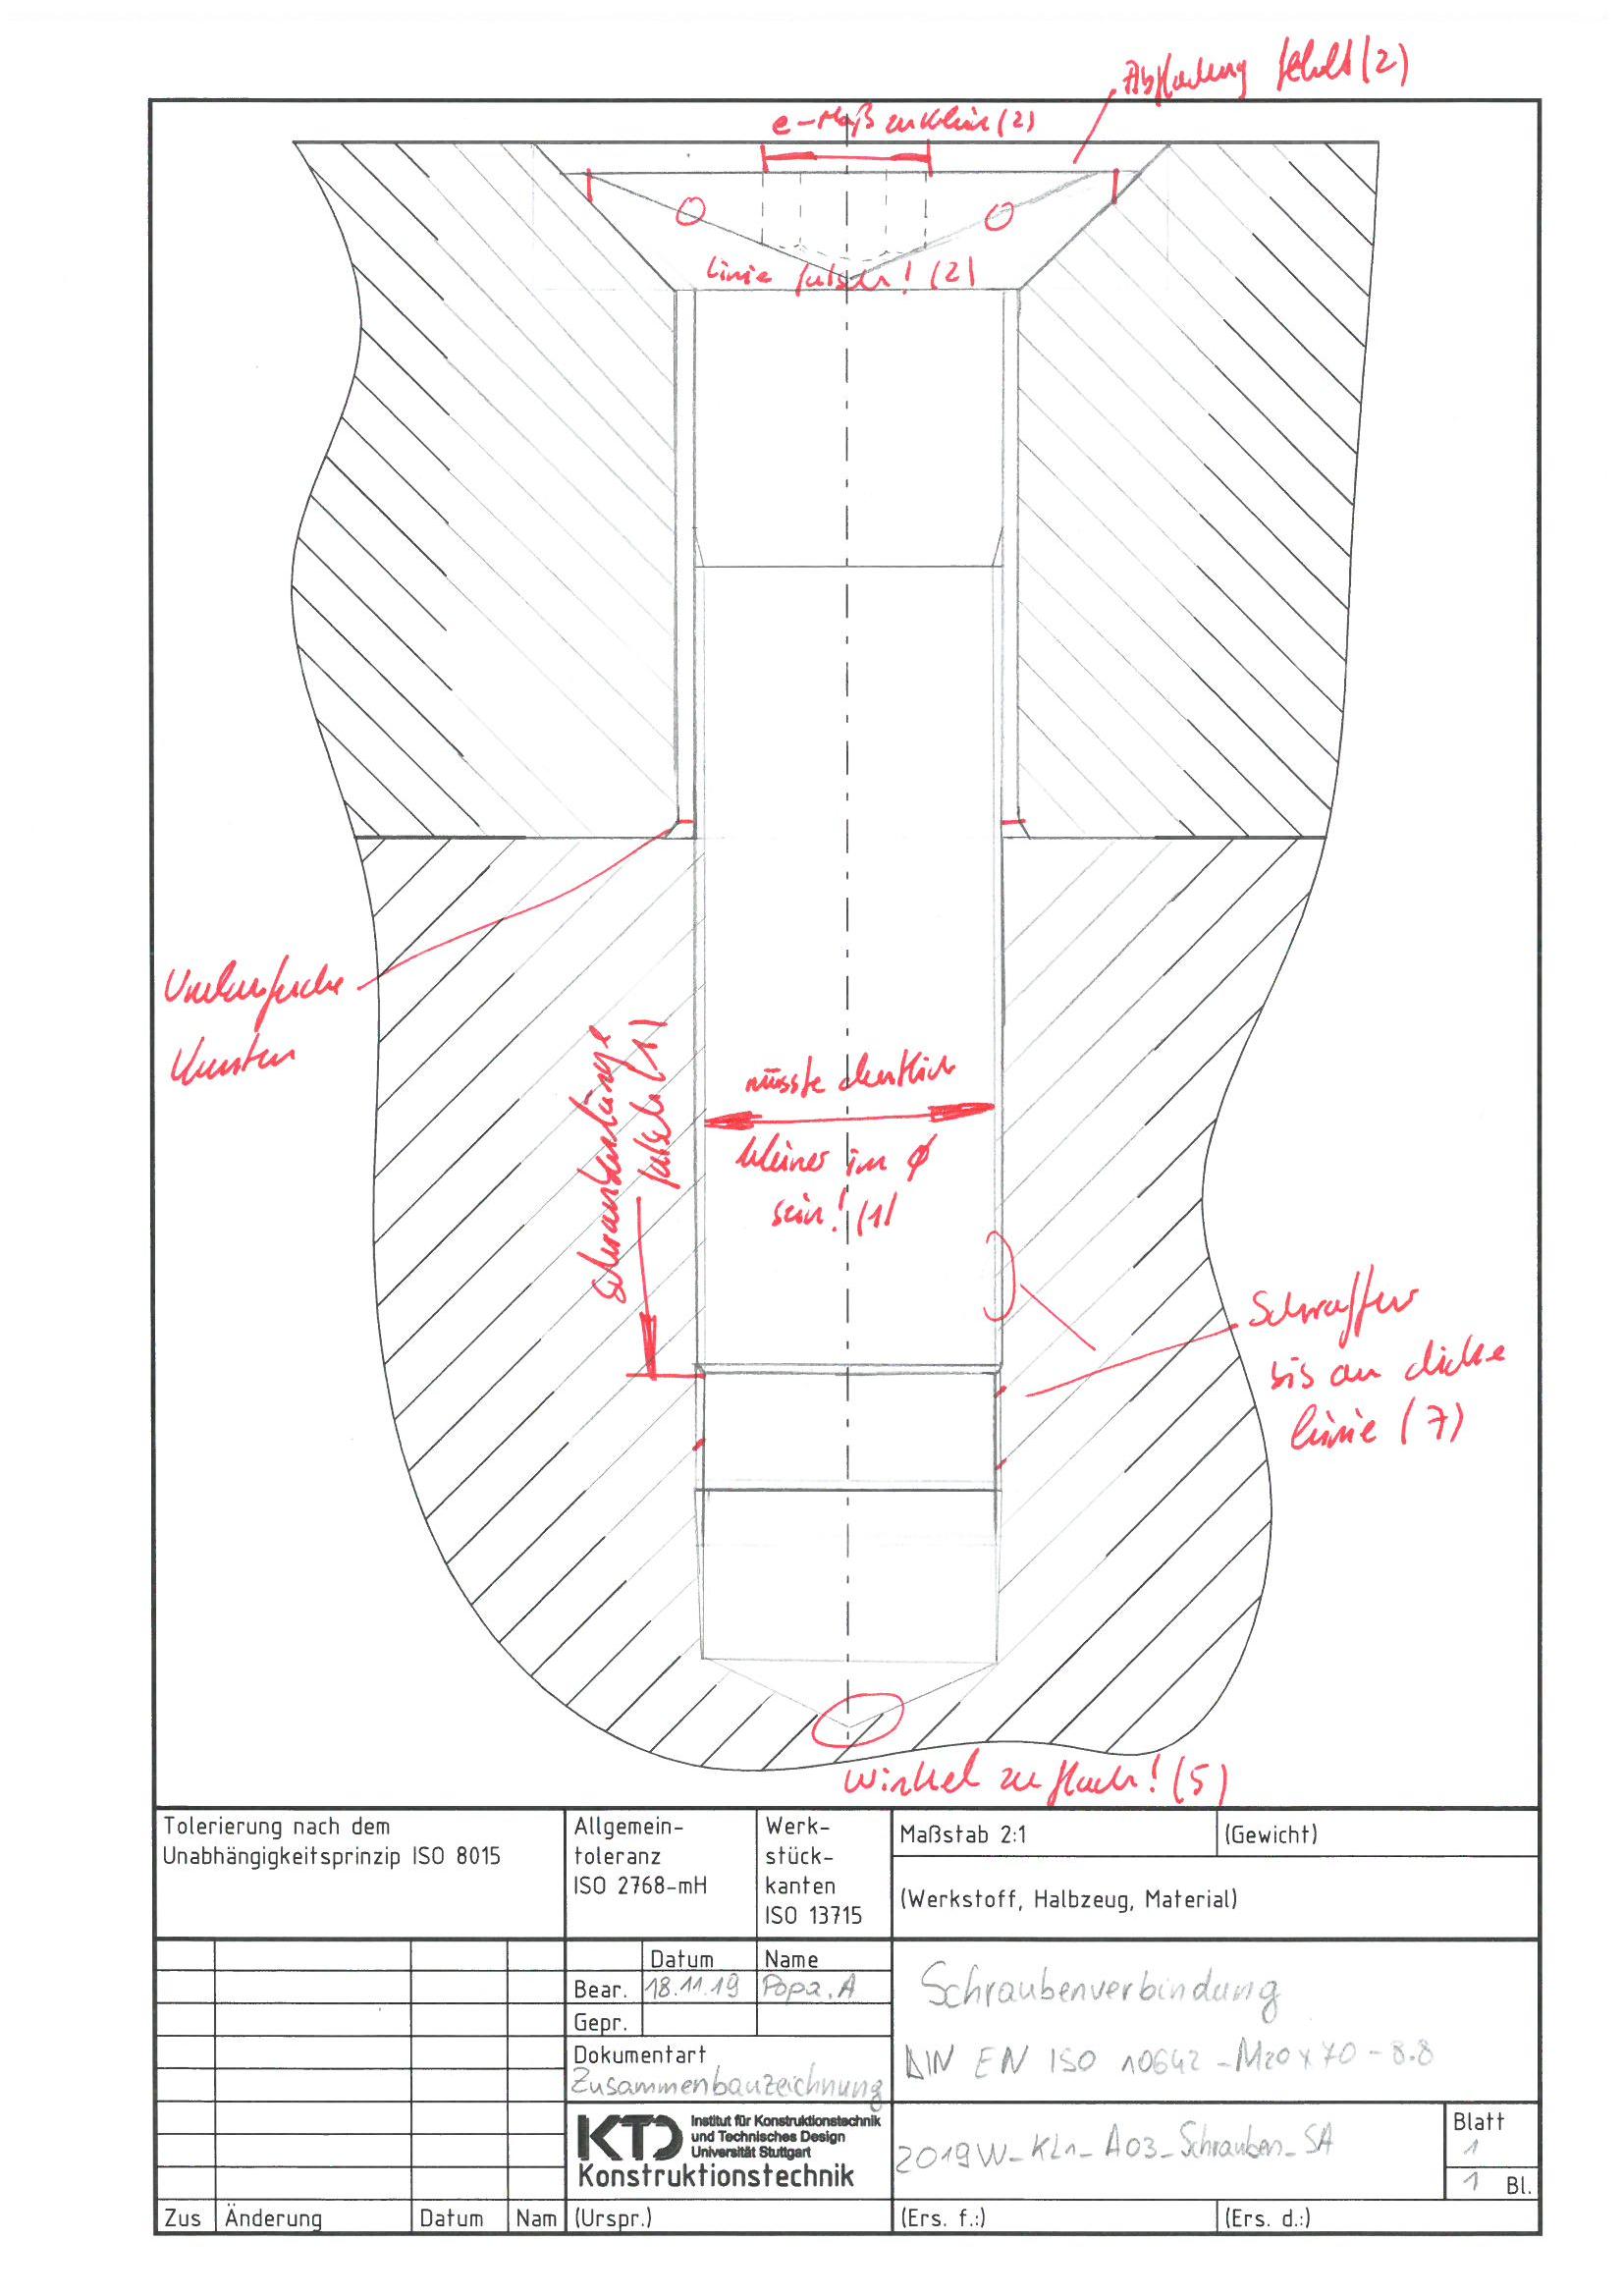 Abflachung fehlt (2)
e-Maß zu klein (2)
Linie falsch! (2)
Umlaufende
Kanten
Schraubenlänge
falsch (1)
müsste deutlich
kleiner im Ø
sein! (1)
Schraffur
bis an dicke
Linie (7)
Winkel zu flach! (5)
Tolerierung nach dem
Unabhängigkeitsprinzip ISO 8015
Allgemein-
toleranz
ISO 2768-mH
Werk-
stück-
kanten
ISO 13715
Maßstab 2:1
(Gewicht)
(Werkstoff, Halbzeug, Material)
Datum Name
Bear. 18.11.19 Popa, A
Gepr.
Dokumentart
Zusammenbauzeichnung
Schraubenverbindung
DIN EN ISO 10642 - M20 x 70 - 8.8
KTD Institut für Konstruktionstechnik
und Technisches Design
Universität Stuttgart
Konstruktionstechnik
2019W_KL1_A03_Schrauben_SA
Blatt
1
1 Bl.
Zus Änderung Datum Nam (Urspr.) (Ers. f.:) (Ers. d.:)